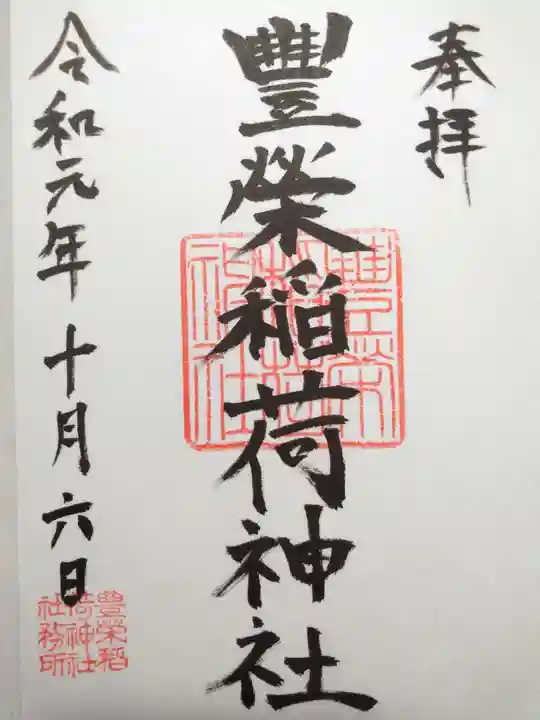 奉拝
豐榮稲荷神社
令和元年十月六日
豊榮稲
荷神社
社務所